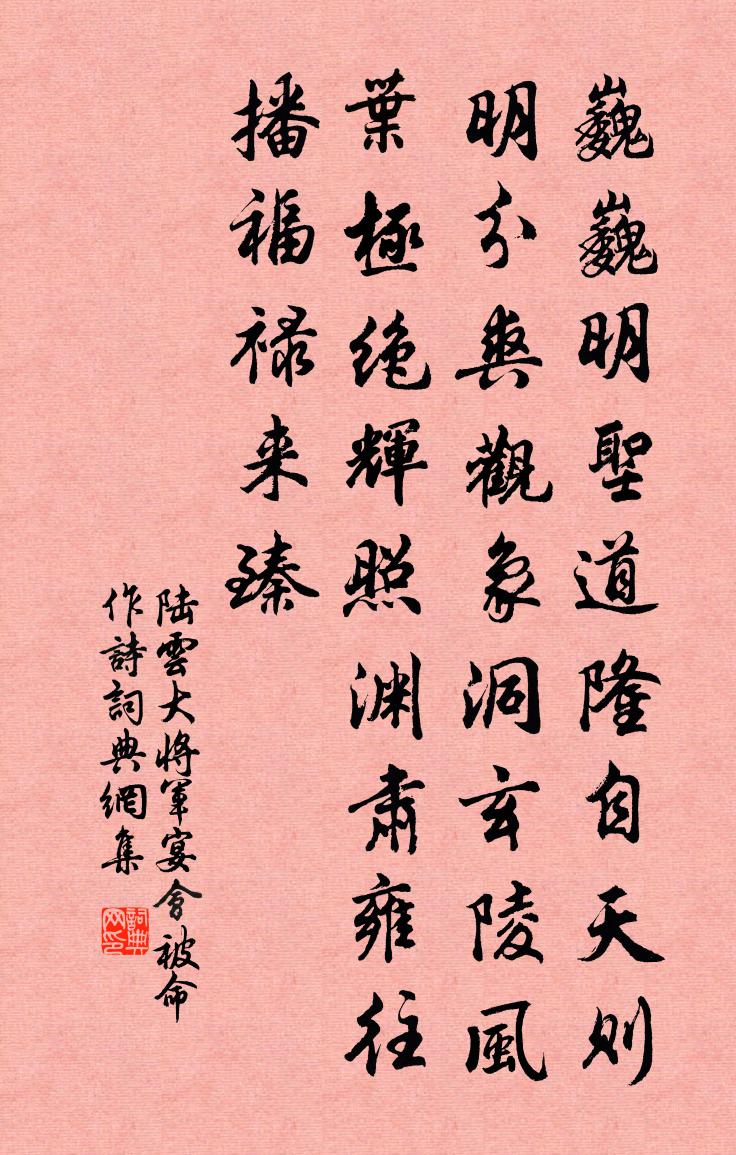 巍巍明聖道隆自天則
明分爽觀象洞玄陵風
葉極絶輝照渊肅雍往
播福禄来臻
陆雲大将軍宴會被命
作詩詞典網集
詞典
网印